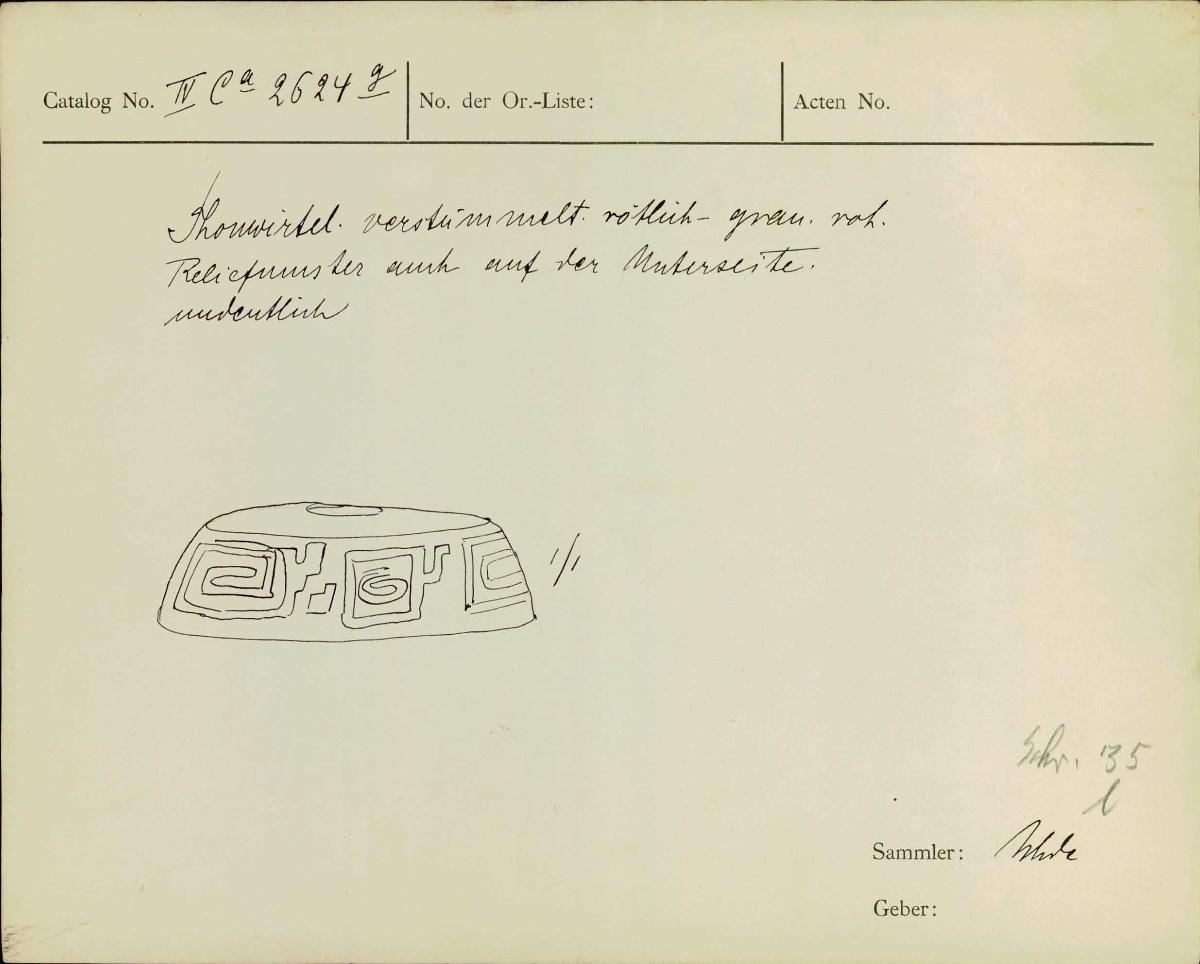 Catalog No. IV Ca 2624 g No. der Or.-Liste: Acten No.
Thonwirtel. verstümmelt. rötlich-grau. roh.
Reliefmuster auch auf der Unterseite.
undeutlich
1/1
Schr. 35
l
Sammler: Uhde
Geber: